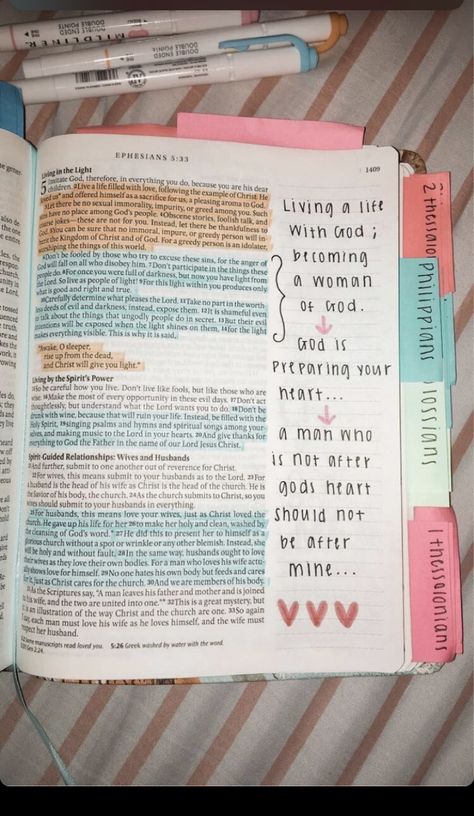 MILDLINER
DOUBLE ENDED
DOUBLE POINTS
EPHESIANS 5:33
1409
Living in the Light
5 Imitate God, therefore, in everything you do, because you are his dear
children. 2Live a life filled with love, following the example of Christ. He
loved us* and offered himself as a sacrifice for us, a pleasing aroma to God.
3Let there be no sexual immorality, impurity, or greed among you. Such
sins have no place among God's people. 4Obscene stories, foolish talk, and
coarse jokes—these are not for you. Instead, let there be thankfulness to
God. 5You can be sure that no immoral, impure, or greedy person will in-
herit the Kingdom of Christ and of God. For a greedy person is an idolater,
worshiping the things of this world.
6Don't be fooled by those who try to excuse these sins, for the anger of
God will fall on all who disobey him. 7Don't participate in the things these
people do. 8For once you were full of darkness, but now you have light from
the Lord. So live as people of light! 9For this light within you produces only
what is good and right and true.
10Carefully determine what pleases the Lord. 11Take no part in the worth-
less deeds of evil and darkness; instead, expose them. 12It is shameful even
to talk about the things that ungodly people do in secret. 13But their evil
intentions will be exposed when the light shines on them, 14for the light
makes everything visible. This is why it is said,
"Awake, O sleeper,
rise up from the dead,
and Christ will give you light."
Living by the Spirit's Power
15So be careful how you live. Don't live like fools, but like those who are
wise. 16Make the most of every opportunity in these evil days. 17Don't act
thoughtlessly, but understand what the Lord wants you to do. 18Don't be
drunk with wine, because that will ruin your life. Instead, be filled with the
Holy Spirit, 19singing psalms and hymns and spiritual songs among your-
selves, and making music to the Lord in your hearts. 20And give thanks for
everything to God the Father in the name of our Lord Jesus Christ.
Spirit-Guided Relationships: Wives and Husbands
21And further, submit to one another out of reverence for Christ.
22For wives, this means submit to your husbands as to the Lord. 23For
a husband is the head of his wife as Christ is the head of the church. He is
the Savior of his body, the church. 24As the church submits to Christ, so you
wives should submit to your husbands in everything.
25For husbands, this means love your wives, just as Christ loved the
church. He gave up his life for her 26to make her holy and clean, washed by
the cleansing of God's word.* 27He did this to present her to himself as a
glorious church without a spot or wrinkle or any other blemish. Instead, she
will be holy and without fault. 28In the same way, husbands ought to love
their wives as they love their own bodies. For a man who loves his wife actu-
ally shows love for himself. 29No one hates his own body but feeds and cares
for it, just as Christ cares for the church. 30And we are members of his body.
31As the Scriptures say, "A man leaves his father and mother and is joined
to his wife, and the two are united into one."* 32This is a great mystery, but
it is an illustration of the way Christ and the church are one. 33So again
I say, each man must love his wife as he loves himself, and the wife must
respect her husband.
some manuscripts read loved you. 5:26 Greek washed by water with the word.
Gen 2:24.
Living a life
with God ;
becoming
a woman
of God.
God is
preparing your
heart...
a man who
is not after
gods heart
should not
be after
mine...
2 thessalo
Philippians
olossians
1 thessalonians